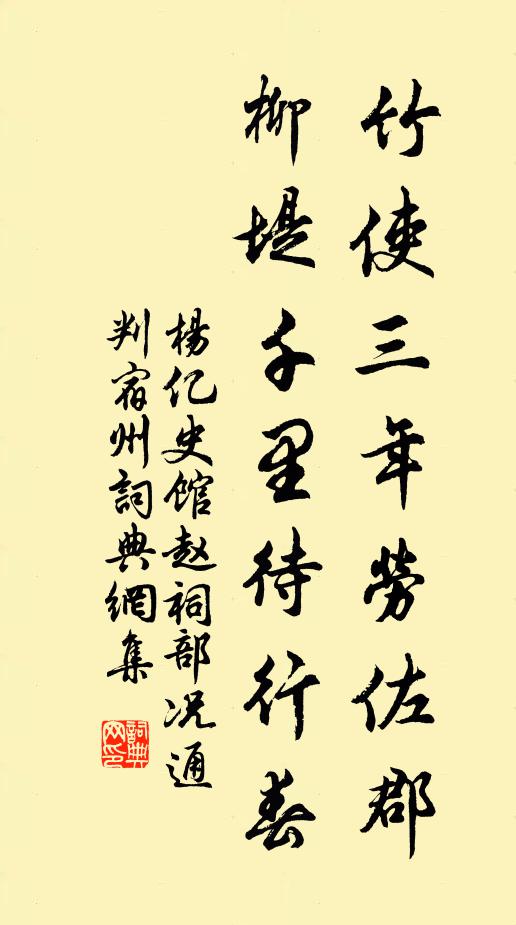 竹使三年勞佐郡
柳堤千里待行春
楊亿史館赵祠部况通
判宿州詞典網集
詞典
网印